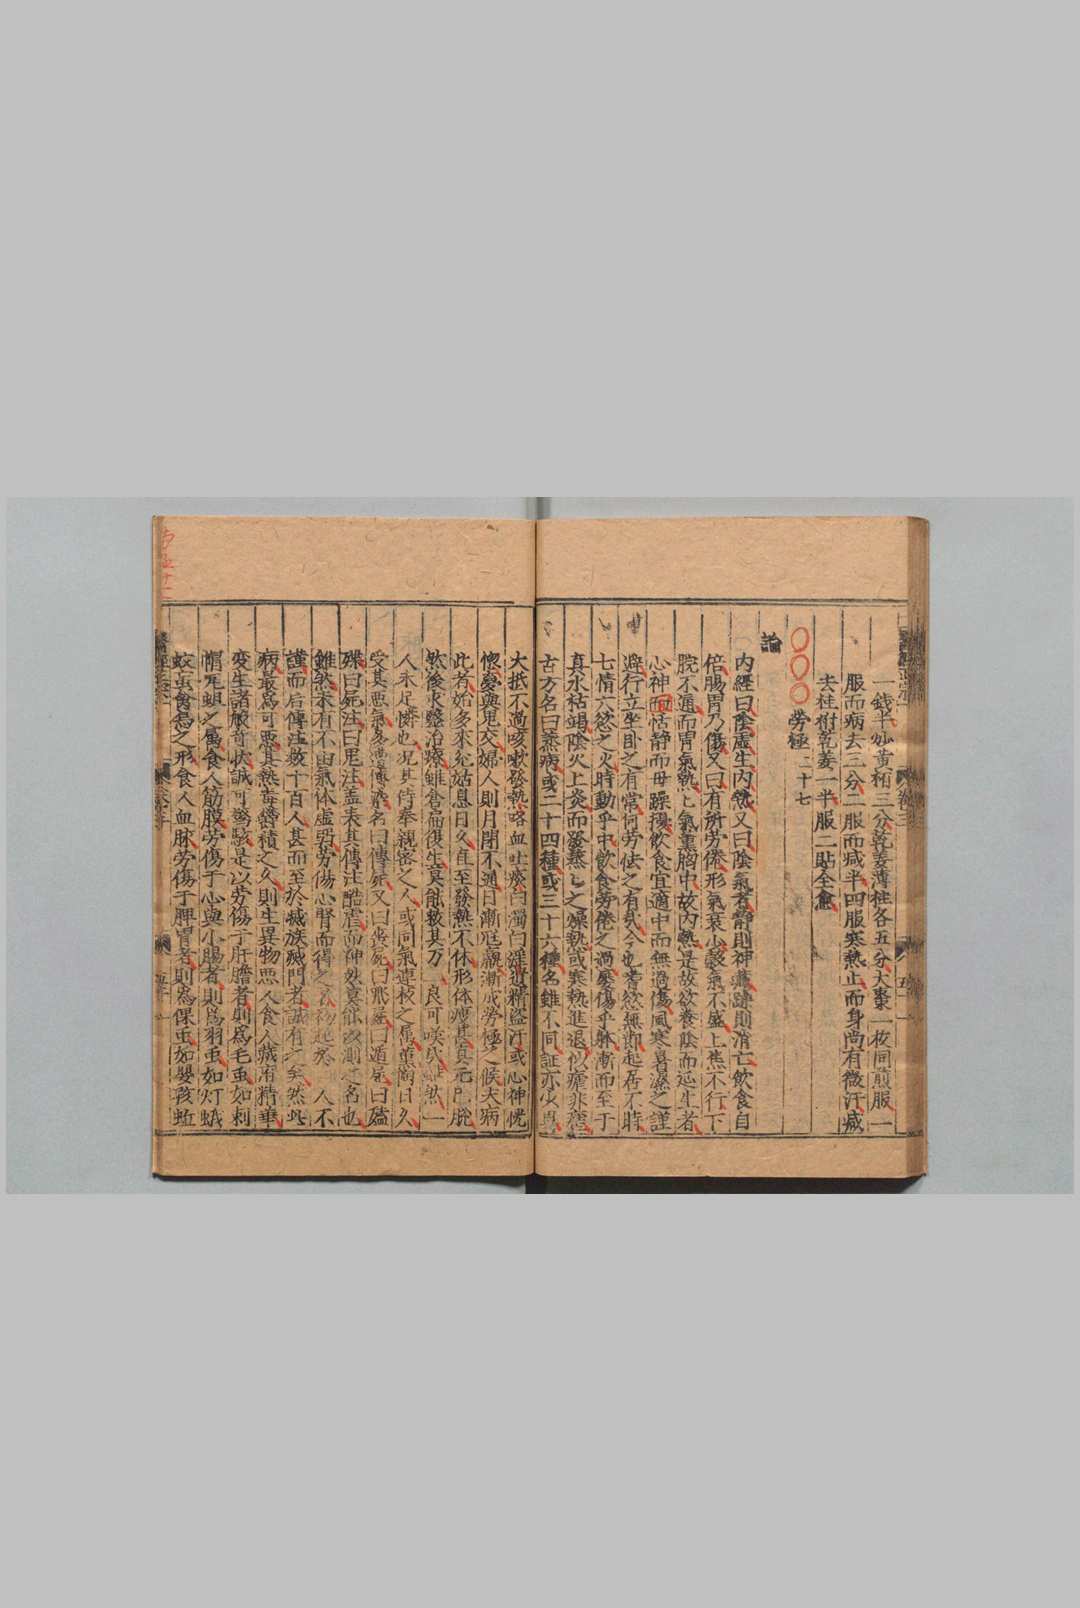 一錢半炒黄栢三分乾姜薄桂各五分大棗一枚同煎服一
服而病去三分二服而减半四服寒熱止而身尚有微汗减
去桂附乾姜一半服二貼全愈
勞極二十七
論
内經曰陰虚生内熱又曰陰氣者静則神藏躁則消亡飲食自
倍腸胃乃傷又曰有所勞倦形氣衰小穀氣不盛上焦不行下
脘不通而胃氣熱熱氣熏胸中故内熱是故欲養陰而延生者
心神而恬静而毋躁擾飲食宜適中而無過傷風寒暑濕之謹
避行立坐卧之有常何勞怯之有哉今也嗜慾無節起居不時
七情六慾之火時動乎中飲食勞倦之過屡傷乎躰漸而至于
真水枯竭陰火上炎而發蒸蒸之燥熱或寒熱進退似瘧非瘧
古方名曰蒸病或二十四種或三十六種名雖不同証亦少異
大抵不過咳嗽發熱咯血吐痰白濁白淫遺精盗汗或心神恍
惚夢與鬼交婦人則月閉不通日漸尫羸漸成勞極之候夫病
此者始多不究姑息日久直至發熱不休形体瘦甚真元已脱
然後求醫治療雖倉扁復生莫能救其万一良可嘆哉雖然一
人未足憐也况其侍奉親密之人或同氣連枝之属薰陶日久
受其悪氣多遭傳染名曰傳尸又曰喪尸曰飛尸曰遁尸曰殗
殜曰尸注曰鬼注盖表其傳注酷虐而神妙莫能測之名也
雖然未有不由氣体虚弱勞傷心腎而得之
謹而后傳注数十百人甚而至於滅族滅門者誠有之矣然此
病最爲可悪其熱毒欝積之久則生異物悪虫食人藏府精華
变生諸般竒状誠可驚駭是以勞傷于肝膽者則爲毛虫如刺
蝟瓦蛆之属食人筋膜勞傷于心與小腸者則爲羽虫如灯蛾
蚊虻禽鳥之形食人血脉勞傷于脾胃者則為倮虫如嬰孩蚯